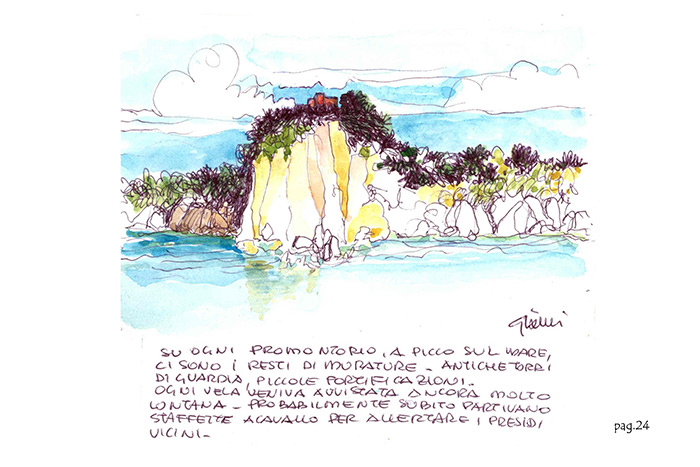 SU OGNI PROMONTORIO, A PICCO SUL MARE,
CI SONO I RESTI DI MURATURE - ANTICHE TORRI
DI GUARDIA, PICCOLE FORTIFICAZIONI.
OGNI VELA VENIVA AVVISTATA ANCORA MOLTO
LONTANA - PROBABILMENTE SUBITO PARTIVANO
STAFFETTE A CAVALLO PER ALLERTARE I PRESIDI
VICINI -
pag.24